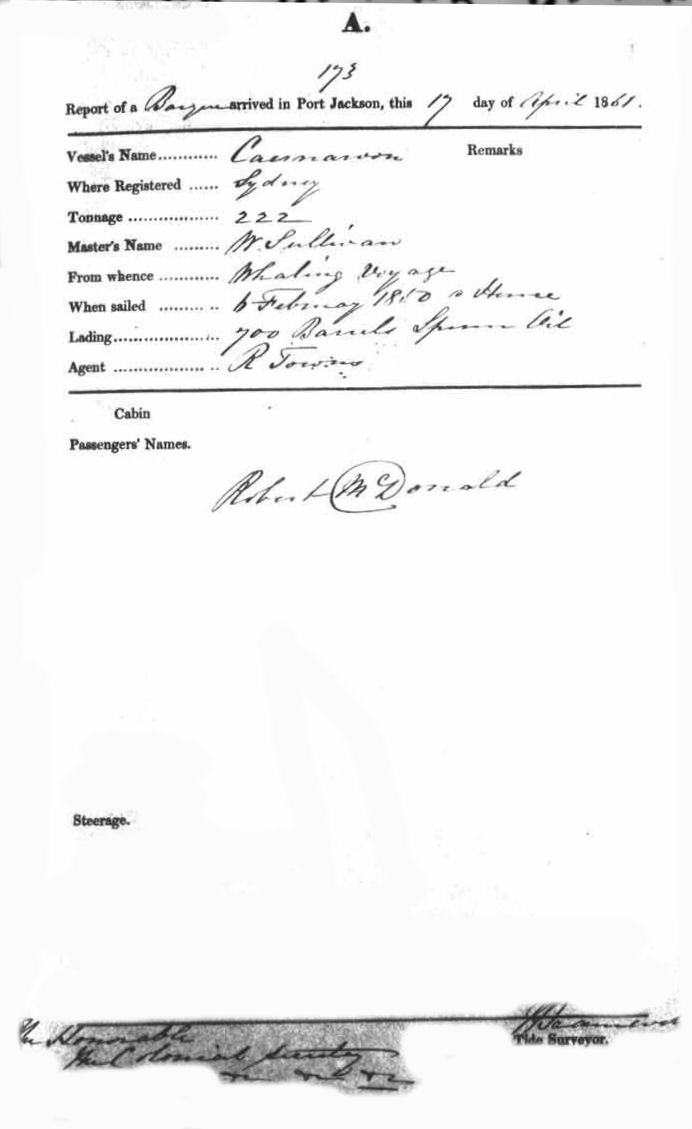 A.
173
Report of a Barque arrived in Port Jackson, this 17 day of April 1861.
Vessel's Name............ Caernarvon Remarks
Where Registered ...... Sydney
Tonnage .................. 222
Master's Name ......... W. Sullivan
From whence ............ Whaling Voyage
When sailed ............ 6 February 1860 Hence
Lading..................... 700 Barrels Sperm Oil
Agent .................... R Towns
Cabin
Passengers' Names.
Robert McDonald
Steerage.
The Honorable
The Colonial Secretary
Tide Surveyor.